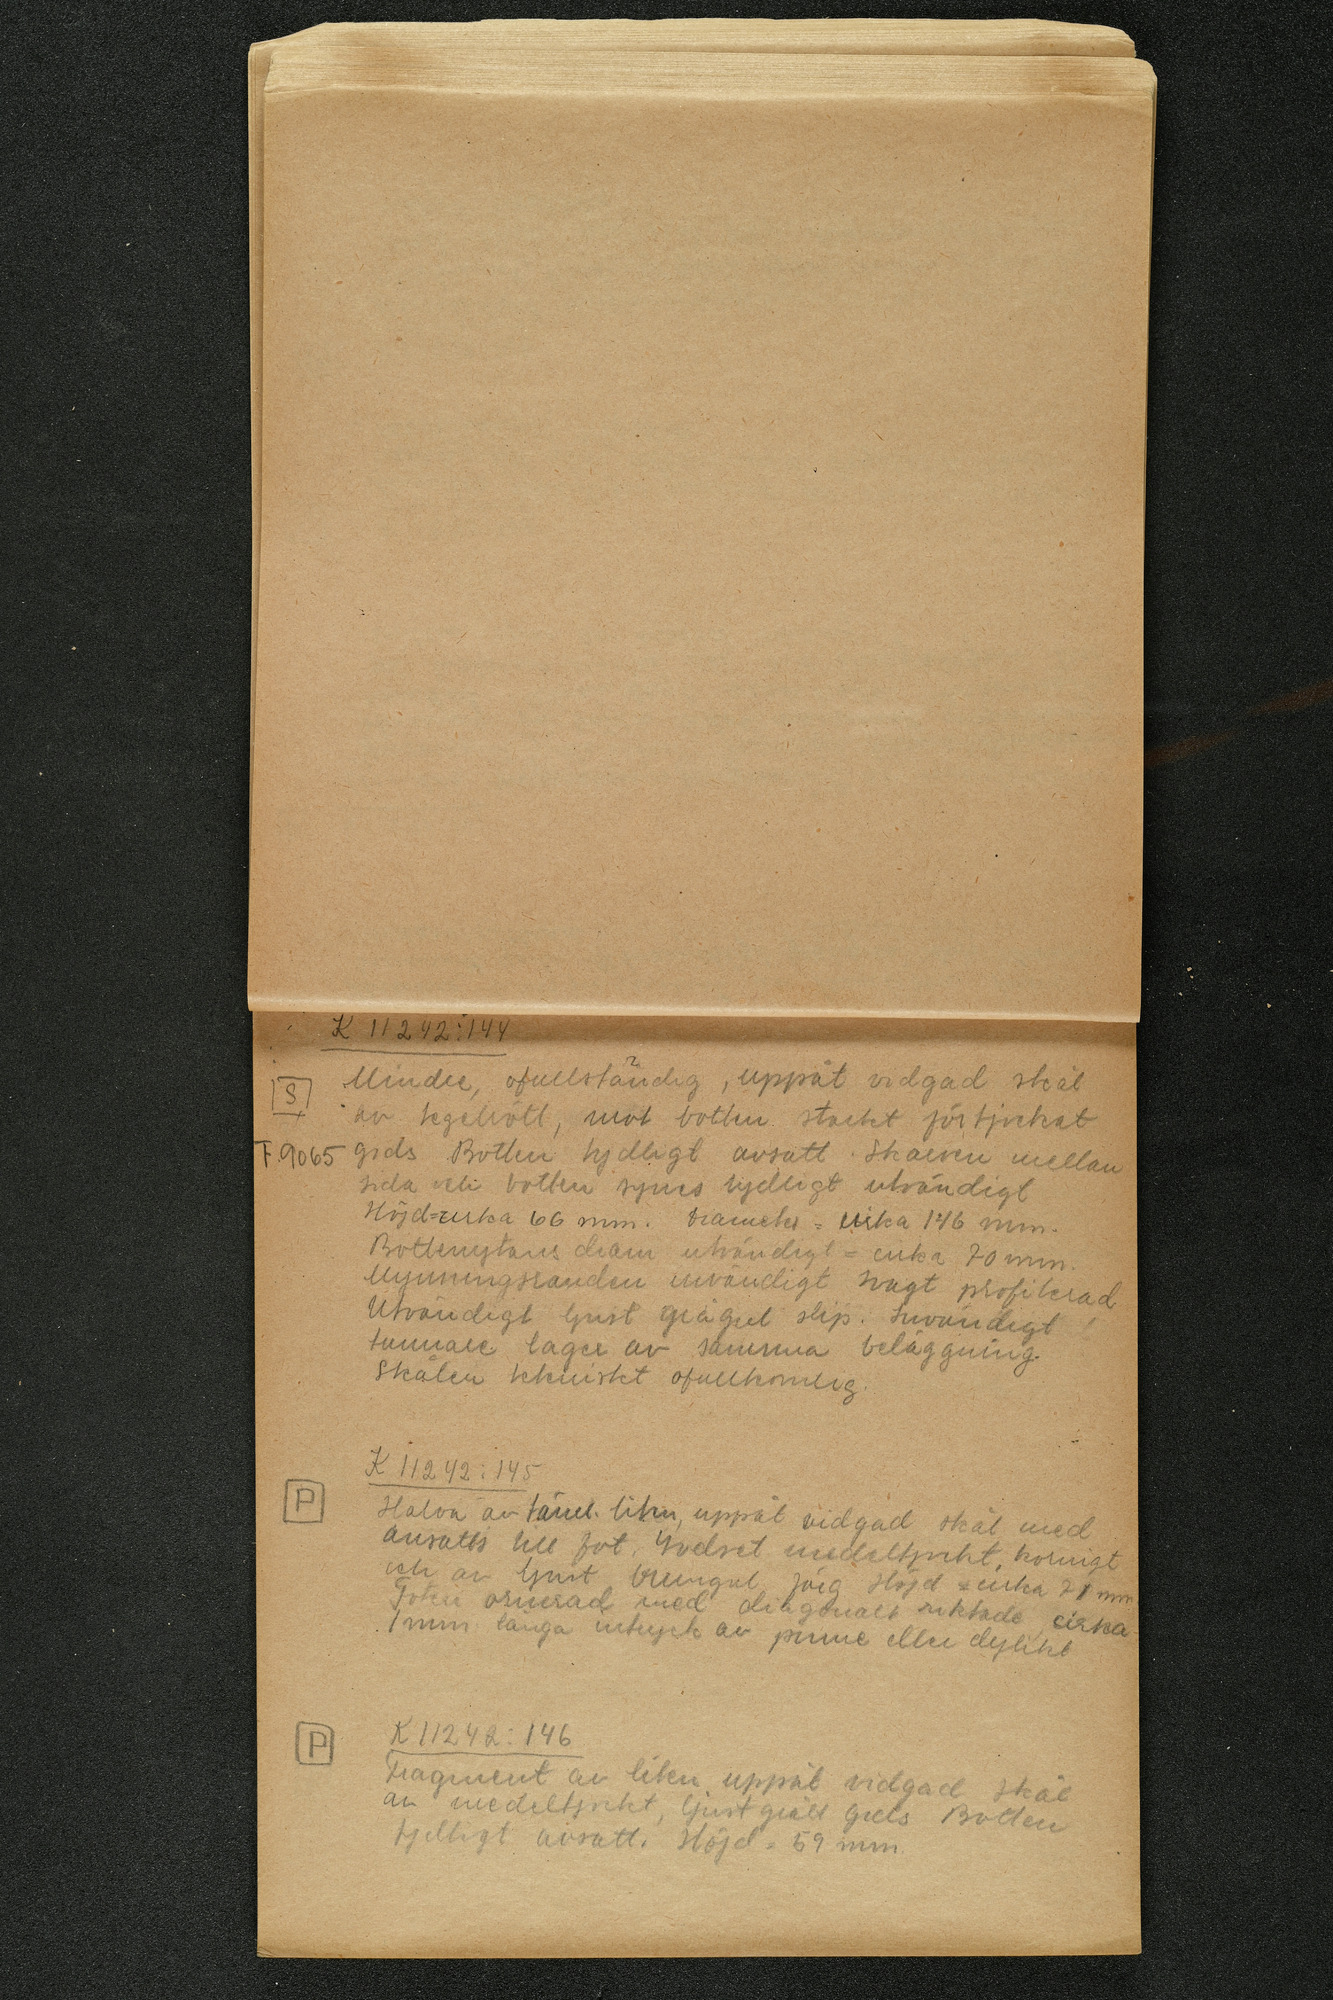 K 11242:144
[S] Mindre, ofullständig, uppåt vidgad skål
av tegelrött, mot botten starkt förtjockat
F.9065 gods Botten tydligt avsatt. Skarven mellan
sida och botten synes tydligt utvändigt
Höjd=cirka 66 mm. Diameter = cirka 146 mm.
Bottenytans diam utvändigt = cirka 70 mm.
Mynningsranden invändigt svagt profilerad
Utvändigt ljust grågul slip. Invändigt
tunnare lager av samma beläggning
Skålen tekniskt ofullkomlig.
K 11242:145
[P] Halva av liten, uppåt vidgad skål med
ansatts till fot. Godset medeltjockt, kornigt
och av ljust brungul färg Höjd = cirka 71 mm
Foten ornerad med diagonalt riktade, cirka
1 mm långa intryck av pinne eller dylikt
[P] K 11242:146
Fragment av liten uppåt vidgad skål
av medeltjockt, ljust grått gods Botten
tydligt avsatt. Höjd = 59 mm